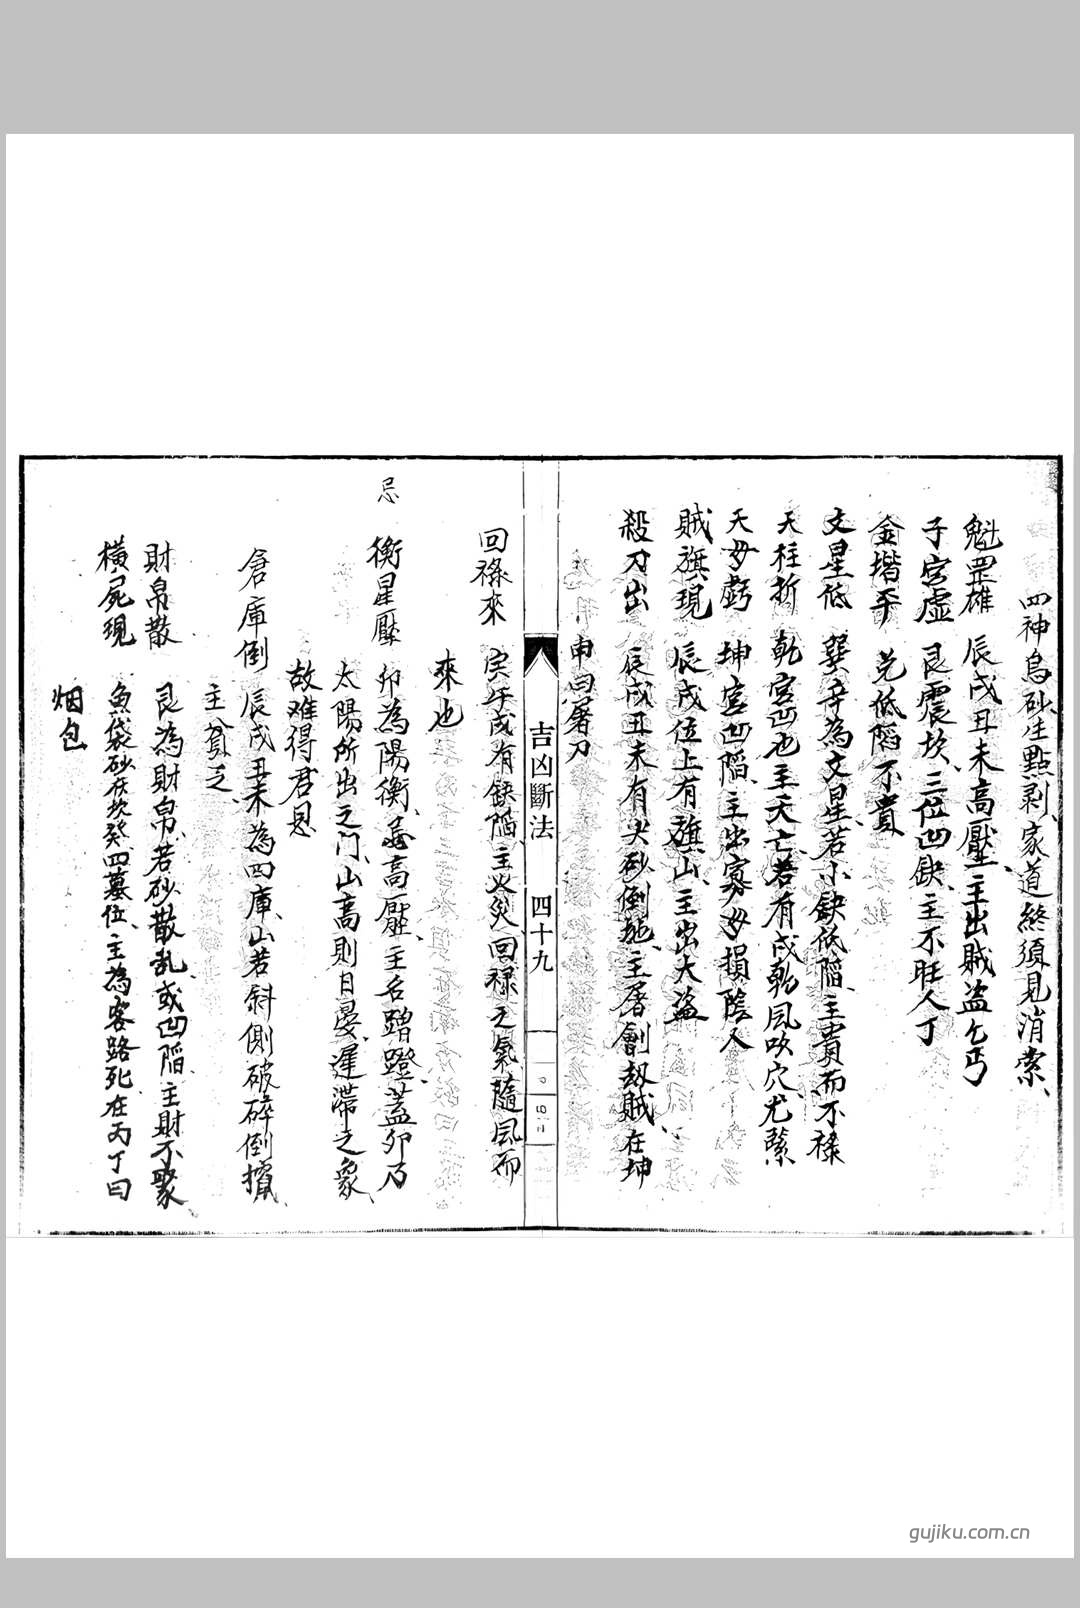 四神烏砂生點剥、家道終須見消索、
魁罡雄　辰戌丑未高壓、主出賊盗乞丐
子宫虚　艮震坎、三位凹缺、主不旺人丁
金堦平　兑低陷不貴
文星低　巽辛為文星若小缺低陷、主貴而不禄
天柱折　乾宫凹也主夭亡、若有戌乾風吹穴、尤緊
天母虧　坤宫凹陷、主出寡母損陰人
賊旗現　辰戌位上有旗山、主出大盗
殺刀出　辰戌丑未有尖砂倒拖、主屠劊刼賊、在坤
申曰屠刀
吉凶斷法　四十九
回禄來　寅午戌有缺陷、主火災回禄之氣隨風而
來也
忌
衡星壓　卯為陽衡、忌高壓、主名蹭蹬、蓋卯乃
太陽所出之門、山高則日晏、遲滯之象、
故难得君恩
倉庫倒　辰戌丑未為四庫、山若斜側破碎倒攧、
主貧乏
財帛散　艮為財帛、若砂散乱或凹陷、主財不聚
橫屍現　魚袋砂在坎癸四墓位、主為客路死、在丙丁曰
烟包
gujiku.com.cn